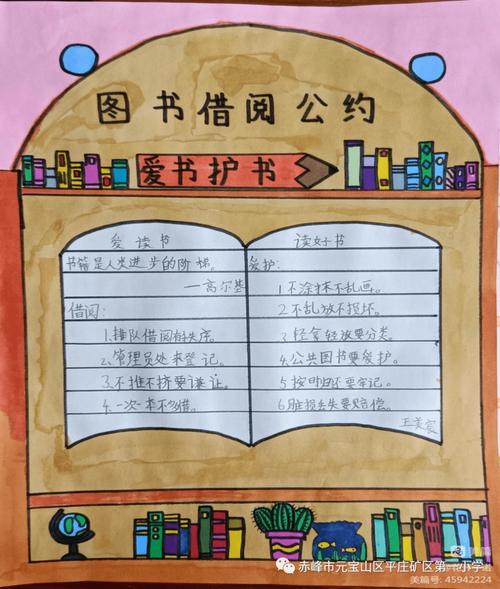 图书借阅公约
爱书护书
爱读书
书籍是人类进步的阶梯。
——高尔基
借阅:
1.排队借阅有秩序。
2.管理员处来登记。
3.不推不挤要谦让。
4.一次一本不多借。
读好书
爱护:
1.不涂抹不乱画。
2.不乱放不损坏。
3.轻拿轻放要分类。
4.公共图书要爱护。
5.按时归还要牢记。
6.脏损丢失要赔偿。
赤峰市元宝山区平庄矿区第一小学
美篇号:45942224